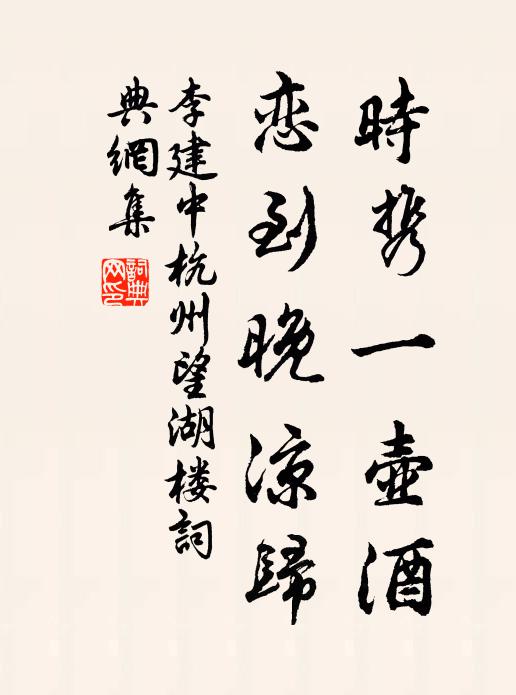 時携一壺酒
恋到晚涼歸
李建中杭州望湖楼詞
典網集
詞典網印